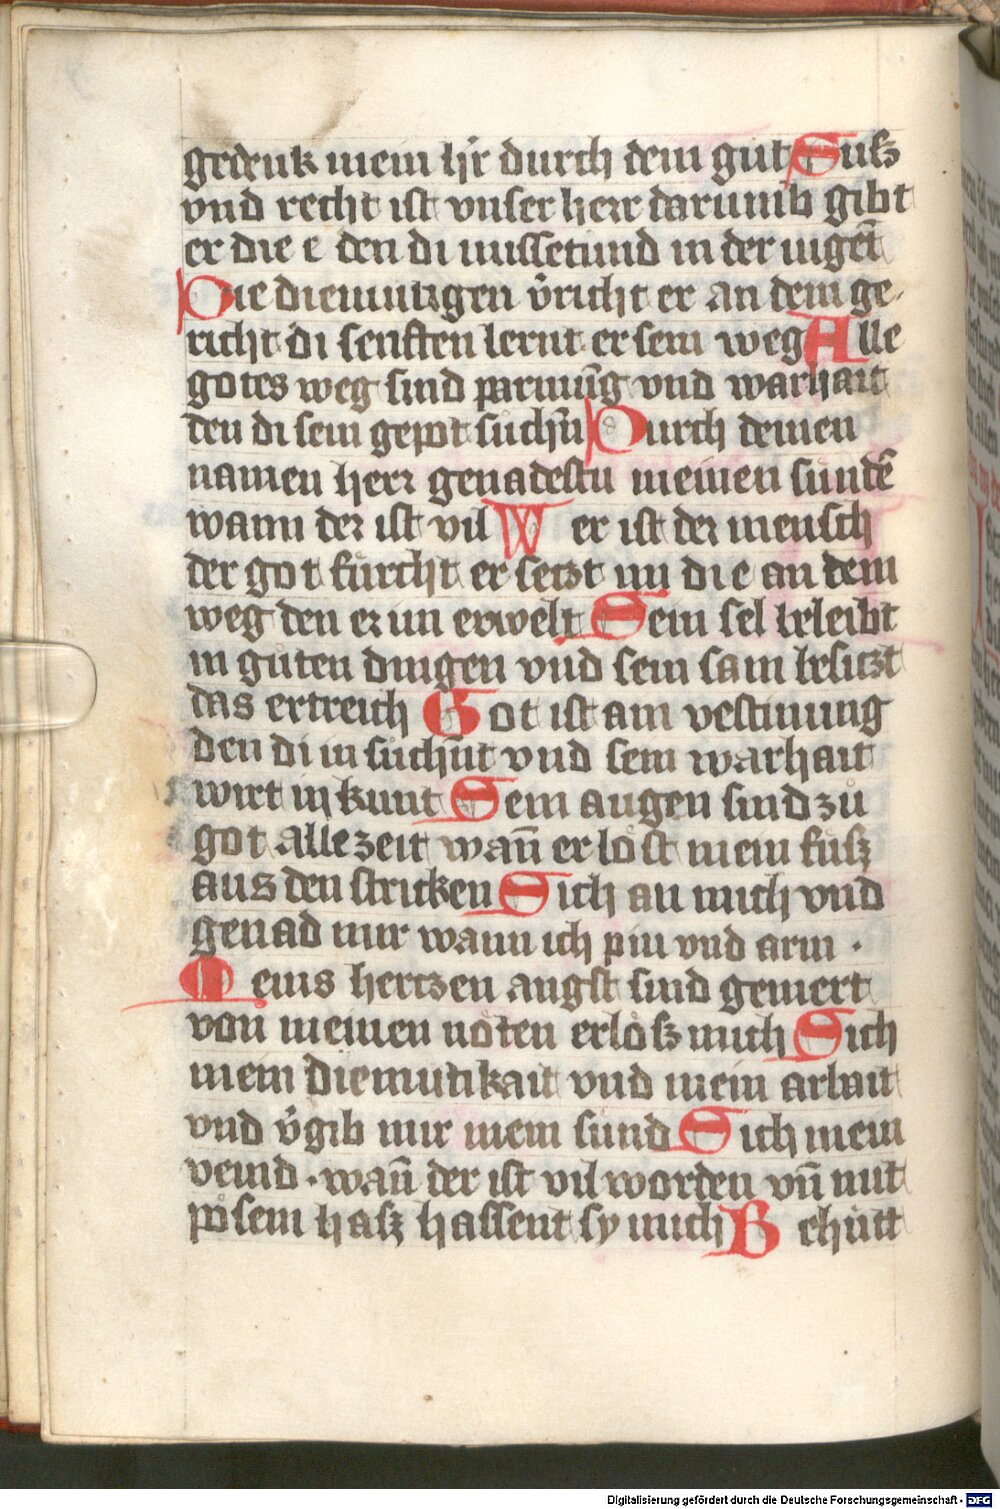 gedenk mein h̄r durch dein gu̍t Su̍ſz
vnd recht iſt vnſer herr darumb gibt
er die e den di miſſetund in der wigē
Die diemutigen v̍richt er an dem ge-
richt di ſenften lernt er ſein weg Alle
gotes weg ſind parmūg vnd warhait
den di ſein gepot ſuchn̄ Durch deinen
namen herr genadeſtu meinen ſundē
wann der iſt vil Wer iſt der menſch
der got fu̍rcht er ſetzt im die an dem
weg den er im erwelt Sein ſel beleibt
in gůten dingen vnd ſein ſam beſitzt
das ertreich Got iſt ain veſtinung
den di in fu̍chn̄t vnd ſein warhait
wirt in kunt Sein augen ſind zů
got alle zeit wan̄ er lo̍ſt mein fu̍ſz
aus den ſtricken Sich an mich vnd
genad mir wann ich pin vnd arm ·
Meins hertzen angſt ſind gemert
von meinen no̍ten erlo̍ſz mich Sich
mein diemutikait vnd mein arbait
vnd v̍gib mir mein ſu̍nd Sich mein
veind · wan̄ der iſt vil worden vn̄ mit
po̍ſem haſz haſſent ſy mich Behu̍tt
Digitalisierung gefördert durch die Deutsche Forschungsgemeinschaft - DFG